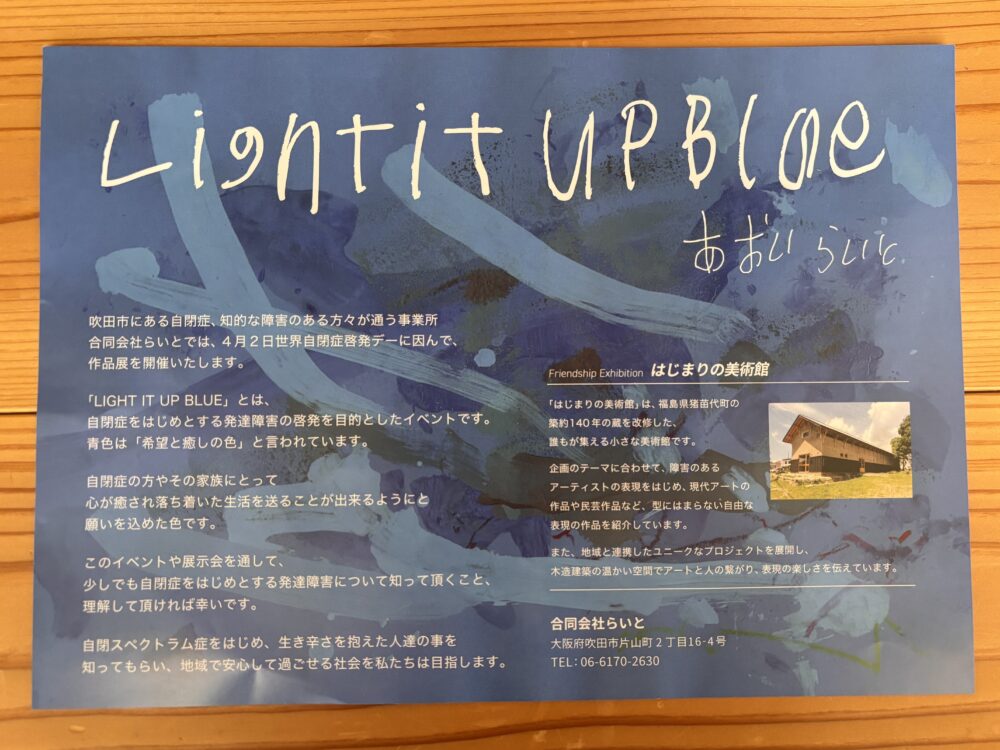 Light it UP Blue
あおい らいと
吹田市にある自閉症、知的な障害のある方々が通う事業所
合同会社らいとでは、４月２日世界自閉症啓発デーに因んで、
作品展を開催いたします。
「LIGHT IT UP BLUE」とは、
自閉症をはじめとする発達障害の啓発を目的としたイベントです。
青色は「希望と癒しの色」と言われています。
自閉症の方やその家族にとって
心が癒され落ち着いた生活を送ることが出来るようにと
願いを込めた色です。
このイベントや展示会を通して、
少しでも自閉症をはじめとする発達障害について知って頂くこと、
理解して頂ければ幸いです。
自閉スペクトラム症をはじめ、生き辛さを抱えた人達の事を
知ってもらい、地域で安心して過ごせる社会を私たちは目指します。
Friendship Exhibition はじまりの美術館
「はじまりの美術館」は、福島県猪苗代町の
築約140年の蔵を改修した、
誰もが集える小さな美術館です。
企画のテーマに合わせて、障害のある
アーティストの表現をはじめ、現代アートの
作品や民芸作品など、型にはまらない自由な
表現の作品を紹介しています。
また、地域と連携したユニークなプロジェクトを展開し、
木造建築の温かい空間でアートと人の繋がり、表現の楽しさを伝えています。
合同会社らいと
大阪府吹田市片山町２丁目16-4号
TEL：06-6170-2630